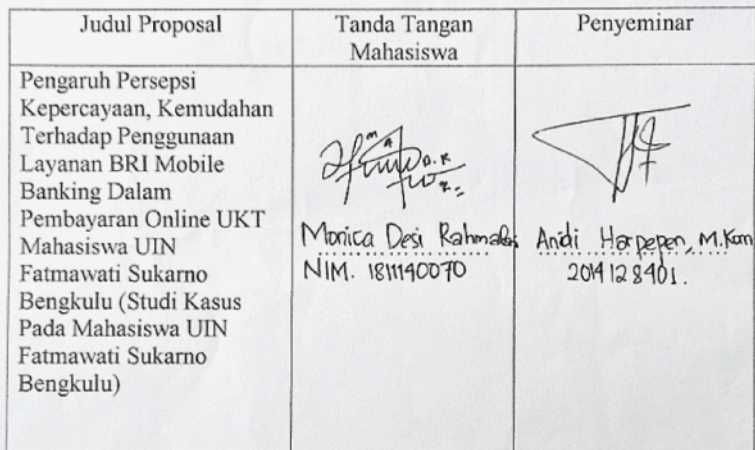 Judul Proposal
Tanda Tangan
Mahasiswa
Penyeminar
Pengaruh Persepsi
Kepercayaan, Kemudahan
Terhadap Penggunaan
Layanan BRI Mobile
Banking Dalam
Pembayaran Online UKT
Mahasiswa UIN
Fatmawati Sukarno
Bengkulu (Studi Kasus
Pada Mahasiswa UIN
Fatmawati Sukarno
Bengkulu)
Monica Desi
NIM. 1811140070
Andi Harpepen, M.Kom
2014128401.